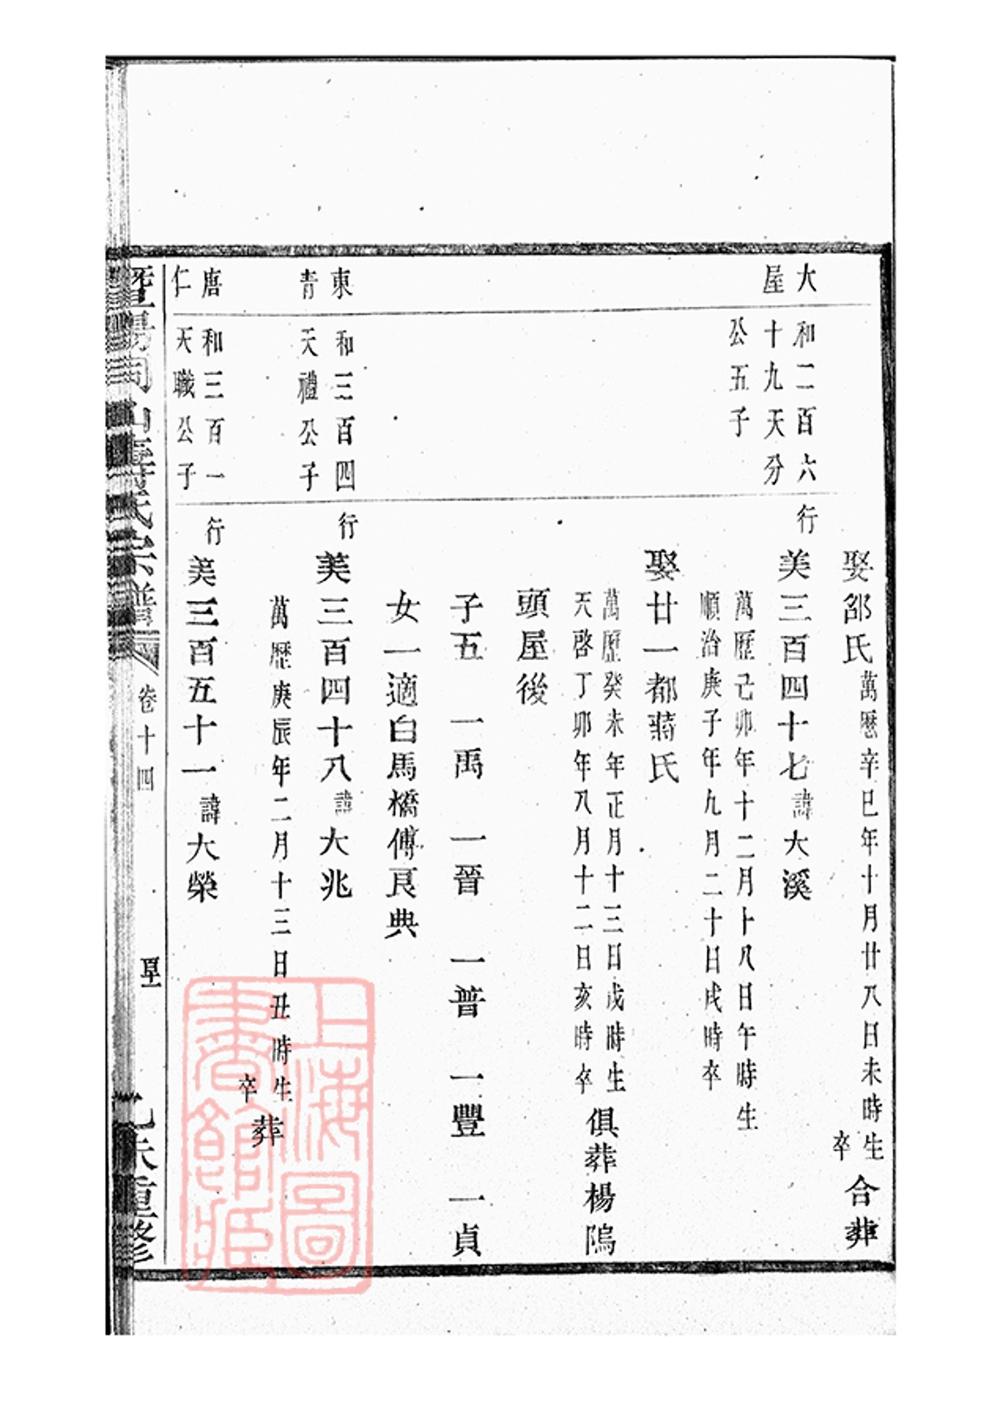 娶邵氏萬曆辛巳年十月廿八日未時生
卒
合葬
大屋
和二百六
十九天分
公五子
行美三百四十七諱大溪
萬歷己卯年十二月十八日午時生
順治庚子年九月二十日戌時卒
娶廿一都蔣氏
萬歷癸未年正月十三日戌時生
天啓丁卯年八月十二日亥時卒
俱葬楊隖
頭屋後
子五 一禹 一晉 一普 一豐 一貞
女一適白馬橋傅良典
東青
和三百四
天禮公子
行美三百四十八諱大兆
萬歷庚辰年二月十三日丑時生
卒
葬
唐仁
和三百一
天職公子
行美三百五十一諱大榮
暨陽同山壽氏宗譜
卷十四
乙未重修
上海圖
書館藏